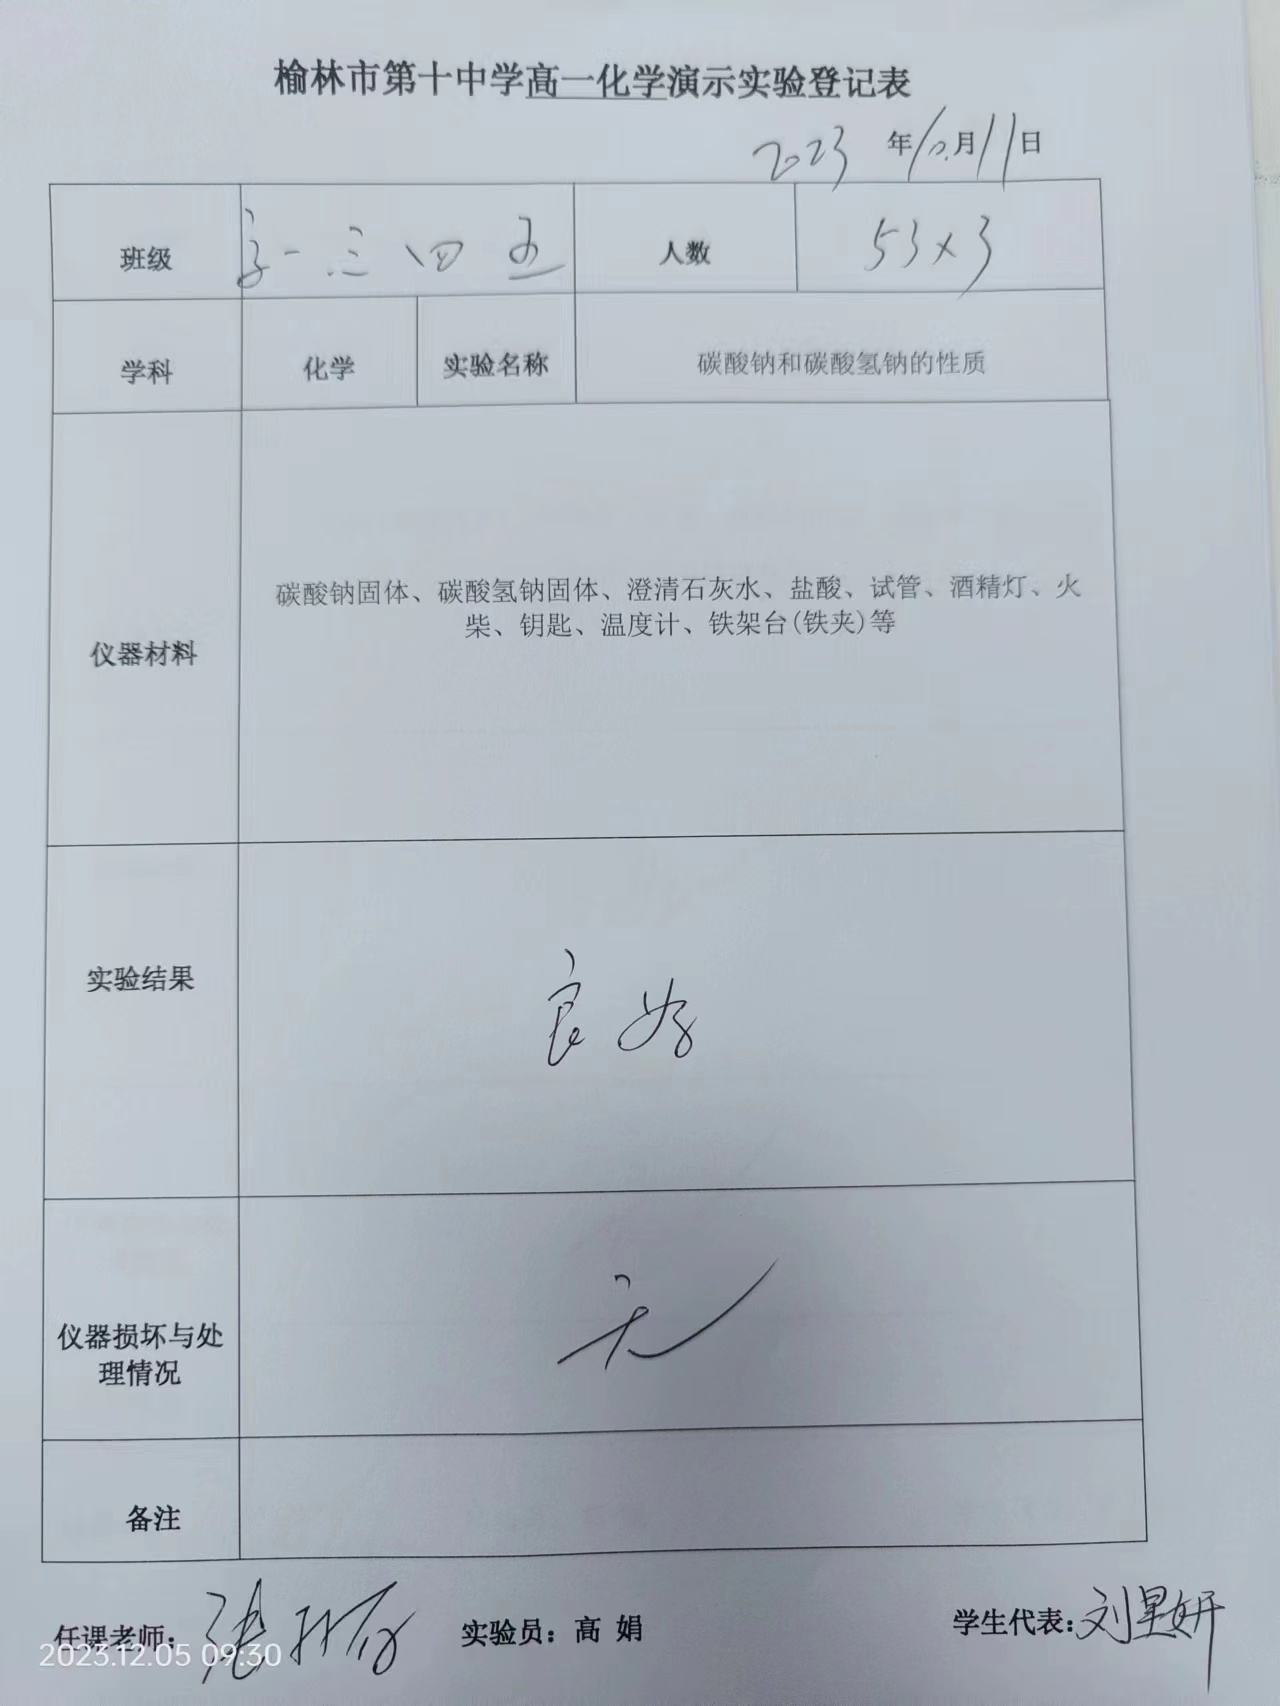 榆林市第十中学高一化学演示实验登记表
2023 年 10 月 11 日
班级 高一 三 四 五 人数 53×3
学科 化学 实验名称 碳酸钠和碳酸氢钠的性质
仪器材料 碳酸钠固体、碳酸氢钠固体、澄清石灰水、盐酸、试管、酒精灯、火
柴、钥匙、温度计、铁架台(铁夹)等
实验结果 良好
仪器损坏与处
理情况 无
备注
任课老师: 张 实验员: 高 娟 学生代表: 刘星妍
2023.12.05 09:30